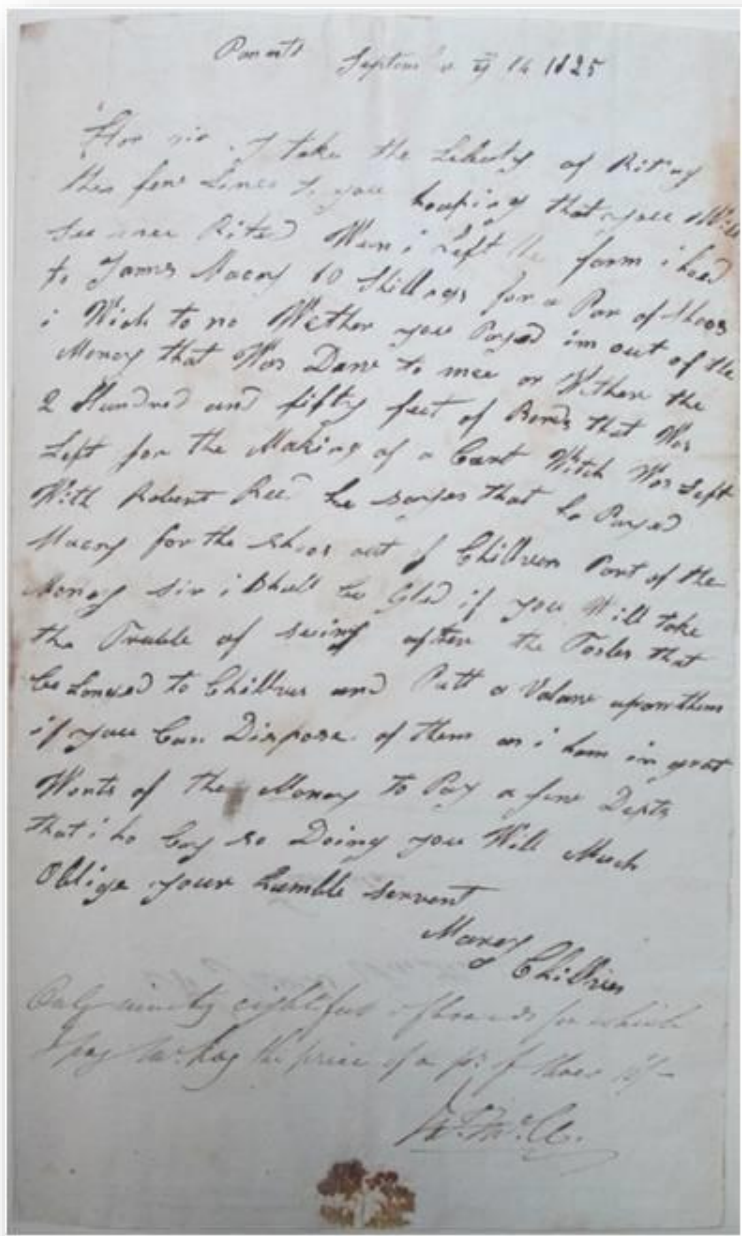 Septem 14 1825
Hon sir i take the Liberty of Riting
thes few Lines to you hoaping that you Will
see mee Rited Wen i left the farm i hoed
to James Macay 10 Shillings for a Par of Shoos
i Wish to no Wether you Payed im out of the
Money that Was Dane to mee or Wither the
2 Hundred and fifty feet of Bords that Was
Left for the Making of a Cart Witch Was Left
With Robert Reed he sayes that he Payed
Macay for the shoos out of Childrien Part of the
Money sir i Shall be Glad if you Will take
the Trouble of seeing after the Tooles that
be Longed to and Putt a Valane upon them
if you Can Dispose of them as i ham in great
Wants of the Money to Pay a few Depts
that i ho bay so Doing you Will Much
Oblige your humble servent
Marey
Only ninety eight feet of boards for which
I pay the price of a pr of shoes 10/-